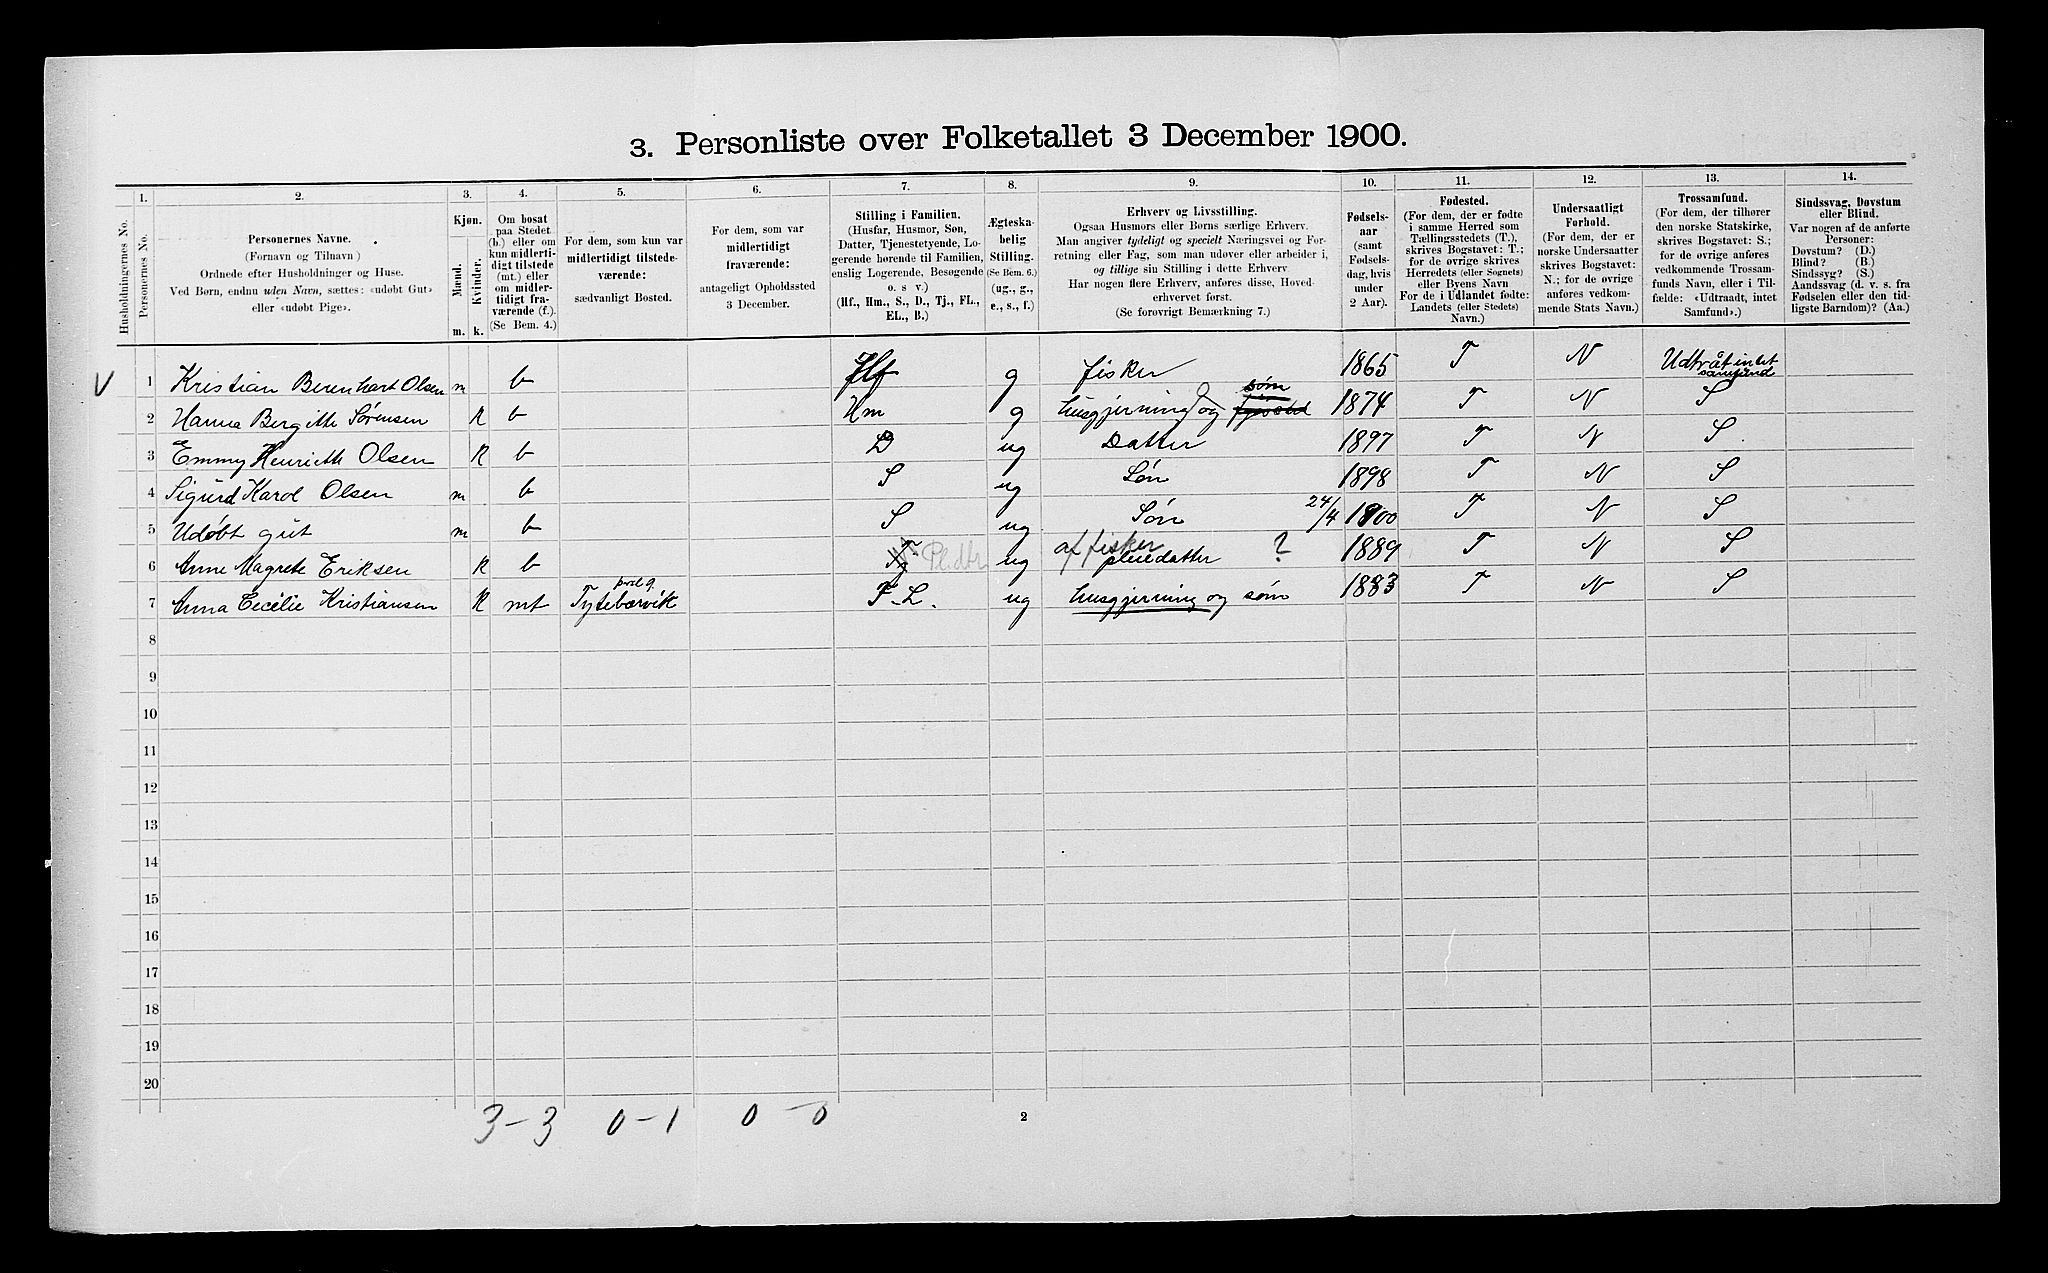 3. Personliste over Folketallet 3 December 1900.
1. 2. 3. 4. 5. 6. 7. 8. 9. 10. 11. 12. 13. 14.
Husholdningernes No.
Personernes No.
Personernes Navne.
(Fornavn og Tilnavn)
Ordnede efter Husholdninger og Huse.
Ved Børn, endnu uden Navn, sættes: «udøbt Gut»
eller «udøbt Pige».
Kjøn.
Mænd.
Kvinder.
m. k.
Om bosat
paa Stedet
(b.) eller om
kun midlerti-
digt tilstede
(mt.) eller
om midler-
tidigt fra-
værende (f.).
(Se Bem. 4.)
For dem, som kun var
midlertidigt tilstede-
værende:
sædvanligt Bosted.
For dem, som var
midlertidigt
fraværende:
antageligt Opholdssted
3 December.
Stilling i Familien.
(Husfar, Husmor, Søn,
Datter, Tjenestetyende, Lo-
gerende hørende til Familien,
enslig Logerende, Besøgende
o. s v.)
(Hf., Hm., S., D., Tj., FL.,
EL., B.)
Ægteska-
belig
Stilling.
(Se Bem. 6.)
(ug., g.,
e., s., f.)
Erhverv og Livsstilling.
Ogsaa Husmors eller Børns særlige Erhverv.
Man angiver tydeligt og specielt Næringsvei og For-
retning eller Fag, som man udøver eller arbeider i,
og tillige sin Stilling i dette Erhverv
Har nogen flere Erhverv, anføres disse, Hoved-
erhvervet først.
(Se forøvrigt Bemærkning 7.)
Fødsels-
aar
(samt
Fødsels-
dag, hvis
under
2 Aar).
Fødested.
(For dem, der er fødte
i samme Herred som
Tællingsstedets (T.),
skrives Bogstavet: T.;
for de øvrige skrives
Herredets (eller Sognets)
eller Byens Navn
For de i Udlandet fødte:
Landets (eller Stedets)
Navn.)
Undersaatligt
Forhold.
(For dem, der er
norske Undersaatter
skrives Bogstavet:
N.; for de øvrige
anføres vedkom-
mende Stats Navn.)
Trossamfund.
(For dem, der tilhører
den norske Statskirke,
skrives Bogstavet: S.;
for de øvrige anføres
vedkommende Trossam-
funds Navn, eller i Til-
fælde: «Udtraadt, intet
Samfund».)
Sindssvag, Døvstum
eller Blind.
Var nogen af de anførte
Personer:
Døvstum? (D.)
Blind? (B.)
Sindssyg? (S.)
Aandssvag (d. v. s. fra
Fødselen eller den tid-
ligste Barndom)? (Aa.)
V 1 Kristian Berenhart Olsen m b Hf g fisker 1865 T N Udtråt intet
samfund
søm
2 Hanna Bergitte Sørensen K b Hm g husgjerning og 1874 T N S
3 Emmy Henriette Olsen K b D ug Datter 1897 T N S
4 Sigurd Karol Olsen m b S ug Søn 1898 T N S
5 Udøbt gut m b S ug Søn 24/4 1900 T N S
af fisker
6 Anne Magrete Eriksen K b Pl.dtr ug pleiedatter ? 1889 T N S
7 Anna Cecilie Kristiansen K mt Tytebærvik F.L. ug husgjerning og søm 1883 T N S
8
9
10
11
12
13
14
15
16
17
18
19
20
3-3 0-1 0-0
2